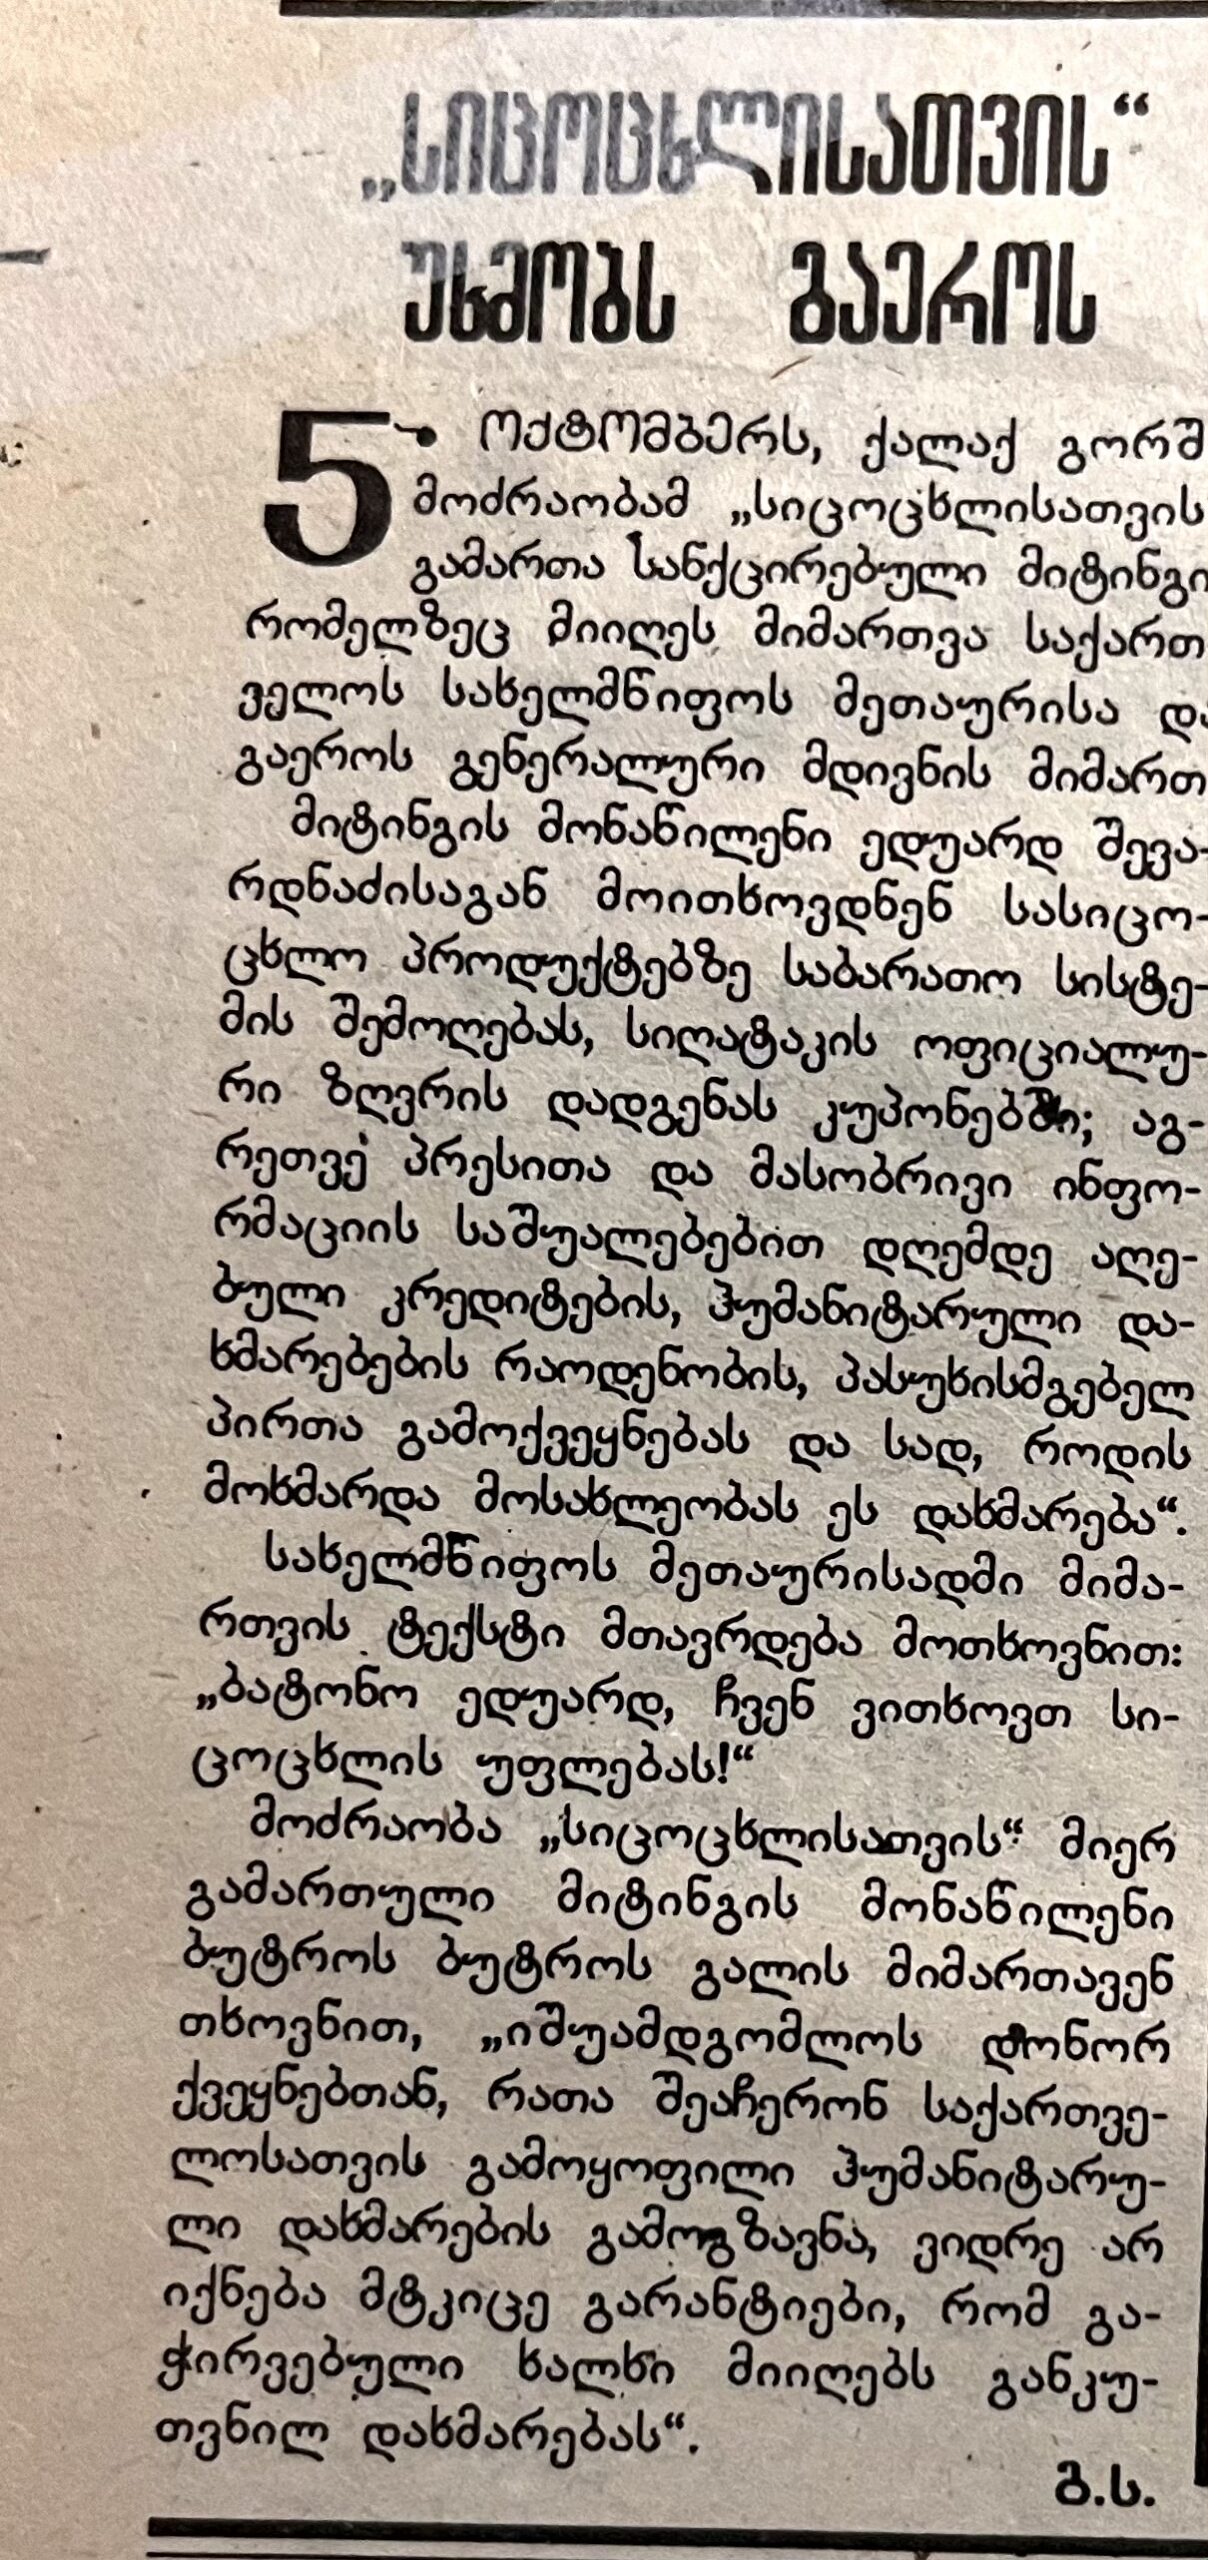 „სიცოცხლისათვის“
უხმობს გაეროს
5 ოქტომბერს, ქალაქ გორშ
მოძრაობამ „სიცოცხლისათვის
გამართა სანქცირებული მიტინგი
რომელზეც მიიღეს მიმართვა საქართ
ველოს სახელმწიფოს მეთაურისა და
გაეროს გენერალური მდივნის მიმართ
მიტინგის მონაწილენი ედუარდ შევა-
რდნაძისაგან მოითხოვდნენ სასიცო-
ცხლო პროდუქტებზე საბარათო სისტე-
მის შემოღებას, სიღატაკის ოფიციალუ-
რი ზღვრის დადგენას კუპონებში; აგ-
რეთვე პრესითა და მასობრივი ინფო-
რმაციის საშუალებებით დღემდე აღე-
ბული კრედიტების, ჰუმანიტარული და-
ხმარებების რაოდენობის, პასუხისმგებელ
პირთა გამოქვეყნებას და სად, როდის
მოხმარდა მოსახლეობას ეს დახმარება“.
სახელმწიფოს მეთაურისადმი მიმა-
რთვის ტექსტი მთავრდება მოთხოვნით:
„ბატონო ედუარდ, ჩვენ ვითხოვთ სი-
ცოცხლის უფლებას!“
მოძრაობა „სიცოცხლისათვის“ მიერ
გამართული მიტინგის მონაწილენი
ბუტროს ბუტროს გალის მიმართავენ
თხოვნით, „იშუამდგომლოს დონორ
ქვეყნებთან, რათა შეაჩერონ საქართვე-
ლოსათვის გამოყოფილი ჰუმანიტარუ-
ლი დახმარების გამოგზავნა, ვიდრე არ
იქნება მტკიცე გარანტიები, რომ გა-
ჭირვებული ხალხი მიიღებს განკუ-
თვნილ დახმარებას“.
გ.ს.